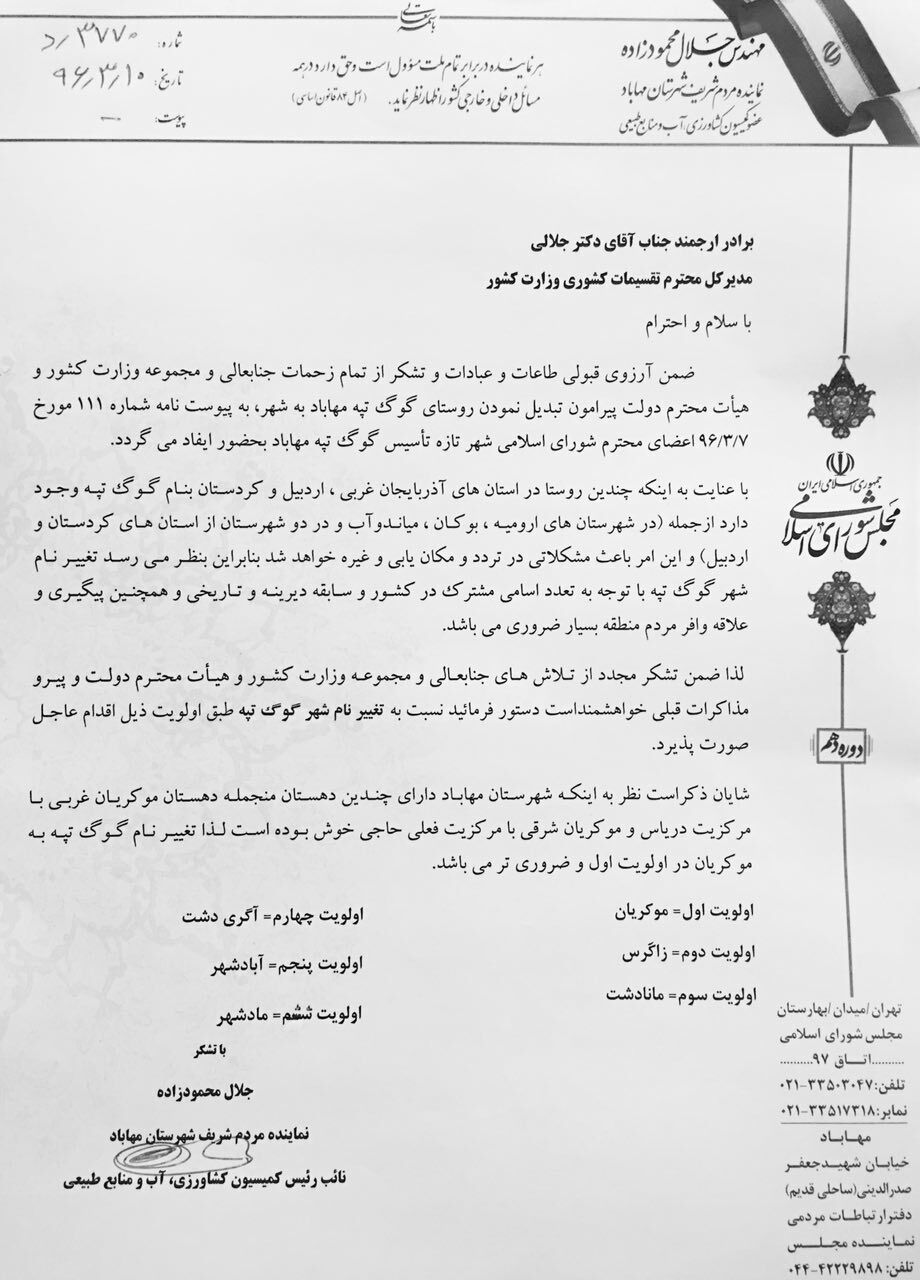 باسمه تعالی
مهندس جلال محمودزاده
نماینده مردم شریف شهرستان مهاباد
عضو کمیسیون کشاورزی، آب و منابع طبیعی
هر نماینده در برابر تمام ملت مسؤول است و حق دارد در همه
مسائل داخلی و خارجی کشور اظهار نظر نماید. (اصل ۸۴ قانون اساسی)
شماره: ۳۷۷۰/د
تاریخ: ۹۶/۳/۱۰
پیوست: —
برادر ارجمند جناب آقای دکتر جلالی
مدیرکل محترم تقسیمات کشوری وزارت کشور
با سلام و احترام
ضمن آرزوی قبولی طاعات و عبادات و تشکر از تمام زحمات جنابعالی و مجموعه وزارت کشور و
هیأت محترم دولت پیرامون تبدیل نمودن روستای گوگ تپه مهاباد به شهر، به پیوست نامه شماره ۱۱۱ مورخ
۹۶/۳/۷ اعضای محترم شورای اسلامی شهر تازه تأسیس گوگ تپه مهاباد بحضور ایفاد می گردد.
با عنایت به اینکه چندین روستا در استان های آذربایجان غربی ، اردبیل و کردستان بنام گوگ تپه وجود
دارد ازجمله (در شهرستان های ارومیه ، بوکان ، میاندوآب و در دو شهرستان از استان های کردستان و
اردبیل) و این امر باعث مشکلاتی در تردد و مکان یابی و غیره خواهد شد بنابراین بنظر می رسد تغییر نام
شهر گوگ تپه با توجه به تعدد اسامی مشترک در کشور و سابقه دیرینه و تاریخی و همچنین پیگیری و
علاقه وافر مردم منطقه بسیار ضروری می باشد.
لذا ضمن تشکر مجدد از تلاش های جنابعالی و مجموعه وزارت کشور و هیأت محترم دولت و پیرو
مذاکرات قبلی خواهشمنداست دستور فرمائید نسبت به تغییر نام شهر گوگ تپه طبق اولویت ذیل اقدام عاجل
صورت پذیرد.
شایان ذکراست نظر به اینکه شهرستان مهاباد دارای چندین دهستان منجمله دهستان موکریان غربی با
مرکزیت دریاس و موکریان شرقی با مرکزیت فعلی حاجی خوش بوده است لذا تغییر نام گوگ تپه به
موکریان در اولویت اول و ضروری تر می باشد.
اولویت اول= موکریان
اولویت دوم= زاگرس
اولویت سوم= مانادشت
اولویت چهارم= آگری دشت
اولویت پنجم= آبادشهر
اولویت ششم= مادشهر
با تشکر
جلال محمودزاده
نماینده مردم شریف شهرستان مهاباد
نائب رئیس کمیسیون کشاورزی، آب و منابع طبیعی
جمهوری اسلامی ایران
مجلس شورای اسلامی
دوره دهم
تهران/میدان/بهارستان
مجلس شورای اسلامی
..........اتـاق ۹۷..........
تلفن:۳۳۵۰۳۰۴۷-۰۲۱
نمابر:۳۳۵۱۷۳۱۸-۰۲۱
مهاباد
خیابان شهیدجعفر
صدرالدینی(ساحلی قدیم)
دفترارتباطات مردمی
نماینده مجلس
تلفن: ۴۲۲۲۹۸۹۸-۰۴۴